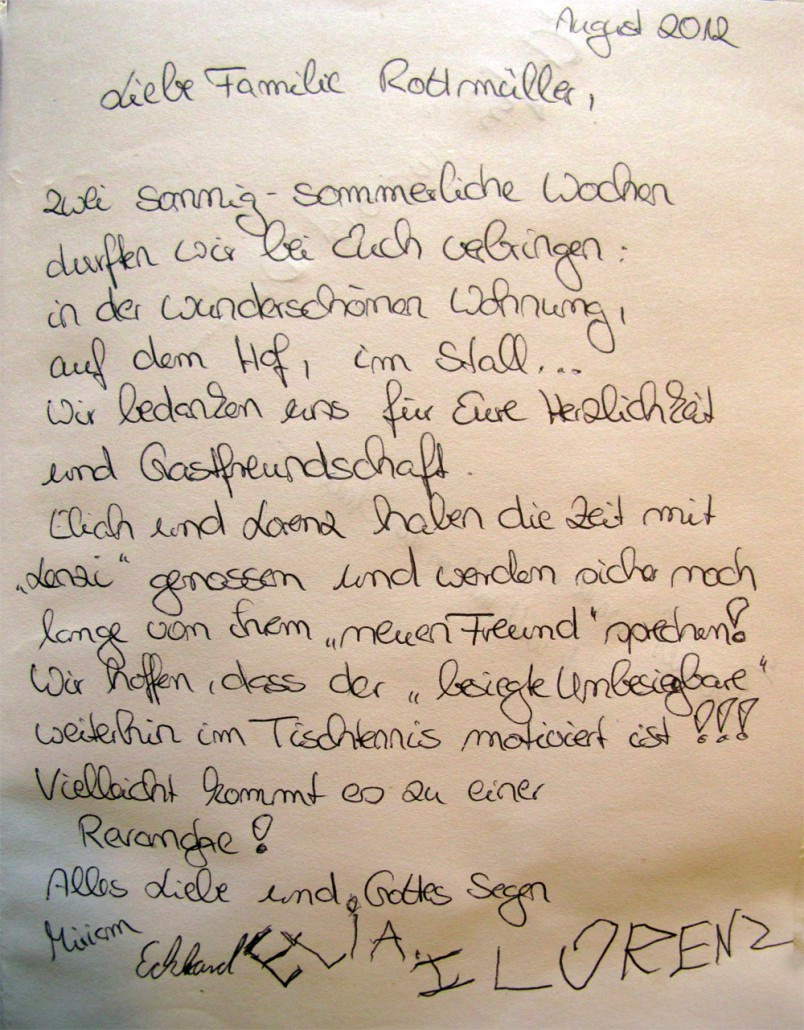 August 2012
Liebe Familie Rottmüller,
zwei sonnig-sommerliche Wochen
durften wir bei Euch verbringen:
in der wunderschönen Wohnung,
auf dem Hof, im Stall...
Wir bedanken uns für Eure Herzlichkeit
und Gastfreundschaft.
Eliah und Lorenz haben die Zeit mit
„Lenzi“ genossen und werden sicher noch
lange von ihrem „neuen Freund“ sprechen!
Wir hoffen, dass der „besiegte Unbesiegbare“
weiterhin im Tischtennis motiviert ist!!!
Vielleicht kommt es zu einer
Revanche!
Alles Liebe und Gottes Segen
Miriam
Eckhard
LORENZ